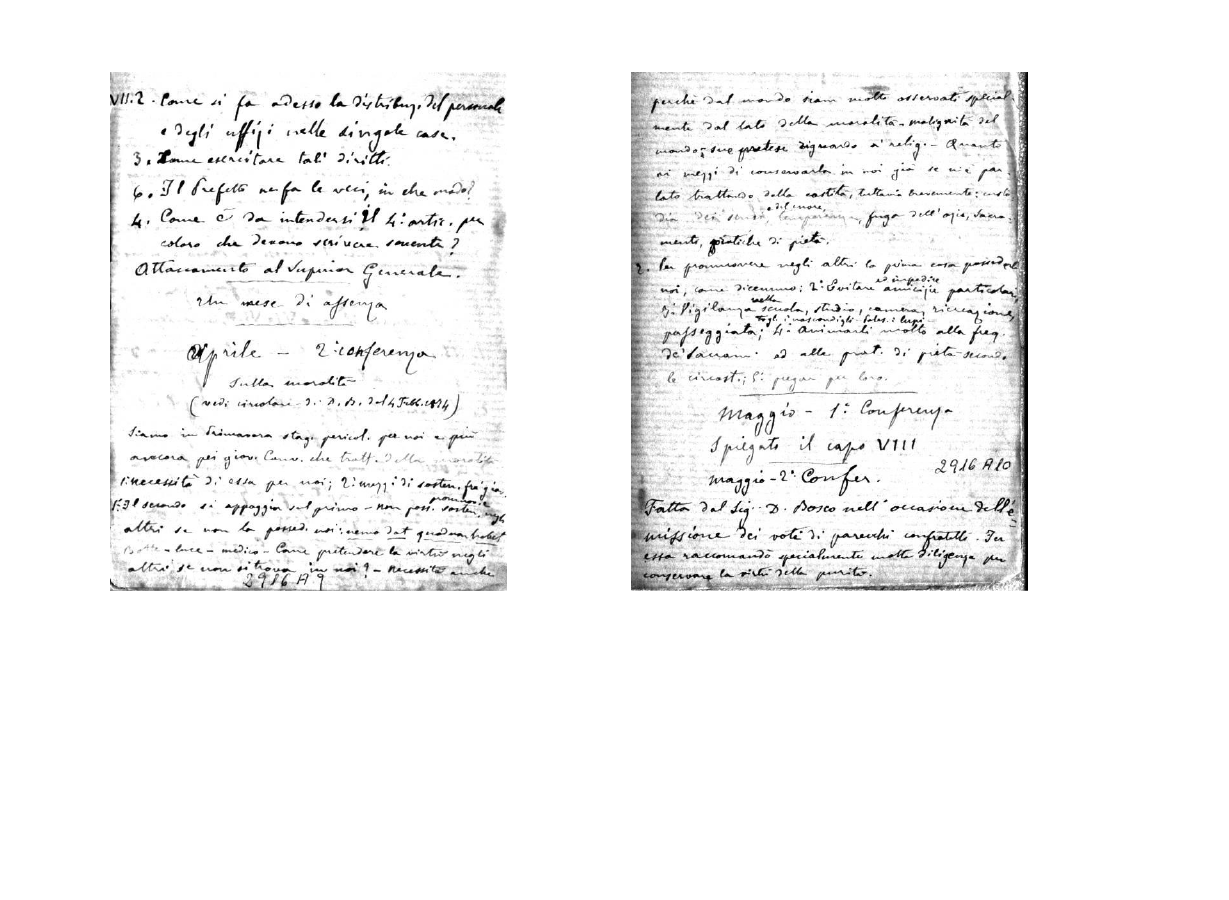 VII.2. Come si fa adesso la distribuz. del personale
e degli uffizi nelle singole case.
3. Come esercitare tali diritti.
6. Il Prefetto ne fa le veci, in che modo?
4. Come è da intendersi il 4° artic. per
coloro che devono scrivere sovente?
Attaccamento al Superior Generale.
Un mese di assenza
Aprile - 2ª conferenza
Sulla moralità
(vedi circolare di D. B. del 4 Febb. 1874)
Siamo in Primavera stag. pericol. per noi e più
ancora pei giov. Conv. che tratt. della moralità
1: necessità di essa per noi; 2: mezzi di sosten. fra giov.
promuov. e
1° Il secondo si appoggia sul primo - non poss. sosten. negli
altri se non la possed. noi: nemo dat quod non habet
Botte - luce - medico - Come pretendere la virtù negli
altri se non si trova in noi? - Necessità anche
2916 A9
perchè dal mondo siam molto osservati special.
mente dal lato della moralità - malignità del
mondo; sue pretese riguardo a' relig. - Quanto
ai mezzi di conservarla in noi già se n'è par-
lato trattando della castità, tuttavia brevemente: custo
e del cuore,
dia dei sensi, temperanza, fuga dell'ozio, Sacra-
menti, pratiche di pietà.
2. Per promuovere negli altri la prima cosa possederla
ed impedire
noi, come dicemmo; 2° Evitare amicizie particolari,
nella
3° Vigilanza scuola, studio, camera, ricreazione,
togl. i nascondigli. Sales. i lupi
passeggiata; 4° Animarli molto alla freq.
de' Sacram. ed alle prat. di pietà secondo
le circost.; 5° pregar per loro.
Maggio - 1ª Conferenza
Spiegato il capo VIII
2916 A10
Maggio - 2ª Confer.
Fatta dal Sig. D. Bosco nell'occasione dell'e-
missione dei voti di parecchi confratelli. In
essa raccomandò specialmente molta diligenza per
conservare la virtù della purità.